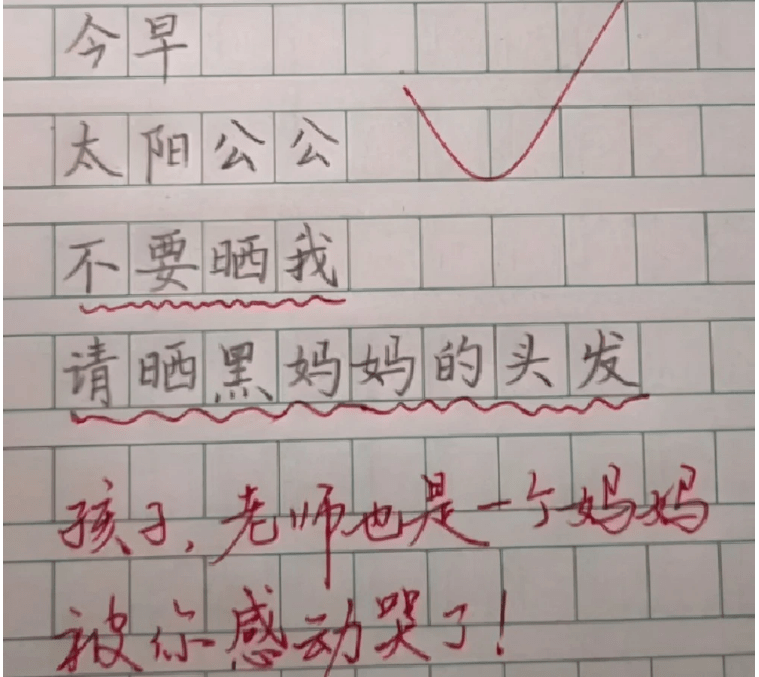 今早
太阳公公
不要晒我
请晒黑妈妈的头发
孩子,老师也是一个妈妈
被你感动哭了!